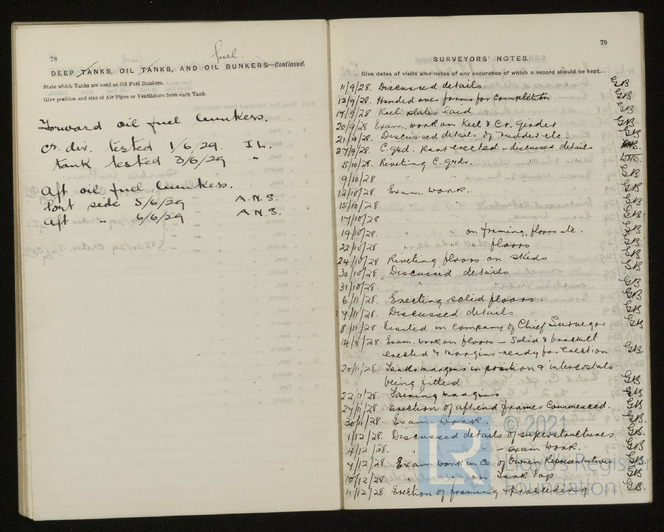 78
fuel.
DEEP TANKS, OIL TANKS, AND OIL BUNKERS—Continued.
State which Tanks are used as Oil Fuel Bunkers.
Give position and size of Air Pipes or Ventilators from each Tank.
Forward oil fuel bunkers.
cr. div. tested 1/6/29. I.L.
tank tested 3/6/29 "
Aft oil fuel bunkers.
Port side 5/6/29 A.N.S.
Aft " 6/6/29 A.N.S.
79
SURVEYORS' NOTES.
Give dates of visits also notes of any occurence of which a record should be kept.
11/9/28. Discussed details GB
12/9/28. Handed over forms for completion GB
17/9/28 Keel plates laid GB
20/9/28 Exam. work on Keel & Cr. Girder GB
21/9/28. Discussed detail. of rudder etc. GB
27/9/28. C. gird. erected - discussed details
5/10/28. Riveting C. girds.
9/10/28 " GB
12/10/28 Exam work. GB
15/10/28 " GB
17/10/28 GB
19/10/28 " on framing, floors etc. GB
22/10/28 " floors GB
24/10/28 Riveting floors on skids GB
30/10/28. Discussed details GB
31/10/28 " GB
6/11/28. Erecting solid floors. GB
7/11/28. Discussed details GB
8/11/28 Visited in company of Chief Surveyor GB
14/11/28 Exam. work on floors - Solid & bracket
erected & margins ready for erection GB
20/11/28. Tank margins in position & intercostals
being fitted GB
22/11/28 Fairing margins GB
27/11/28 Erection of aft end frames commenced. GB
30/11/28 Exam work GB
1/12/28. Discussed details of superstructures GB
4/12/28. " - exam work. GB
7/12/28. Exam. work in Co. of Owners Representative GB
10/12/28 " on Tank Top GB
11/12/28 Erection of framing & proceeding GB
LR
© 2021
Lloyd's Register
Foundation